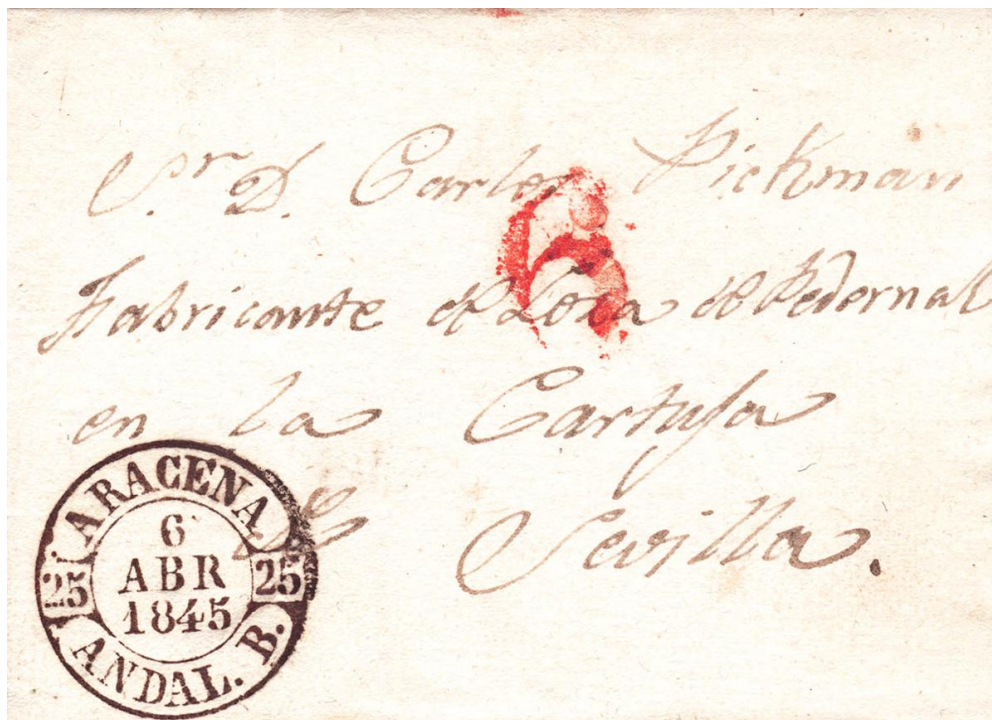 Sr. D. Carlos Pickman
6
Fabricante de Loza de Pedernal
en la Cartuja
de Sevilla.
ARACENA
25 6 ABR 1845 25
ANDAL. B.